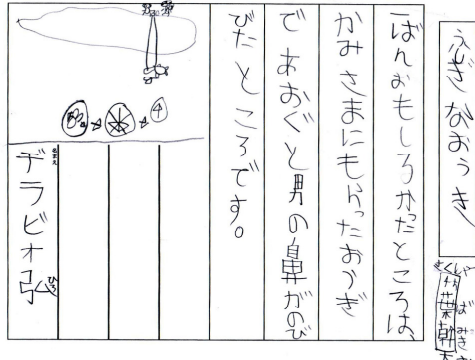 ふしぎなおうぎ
ばんおもしろかったところは、
かみさまにもらったおうぎ
であおぐと男の鼻がのび
びたところです。
デラビオ弘
ひろ